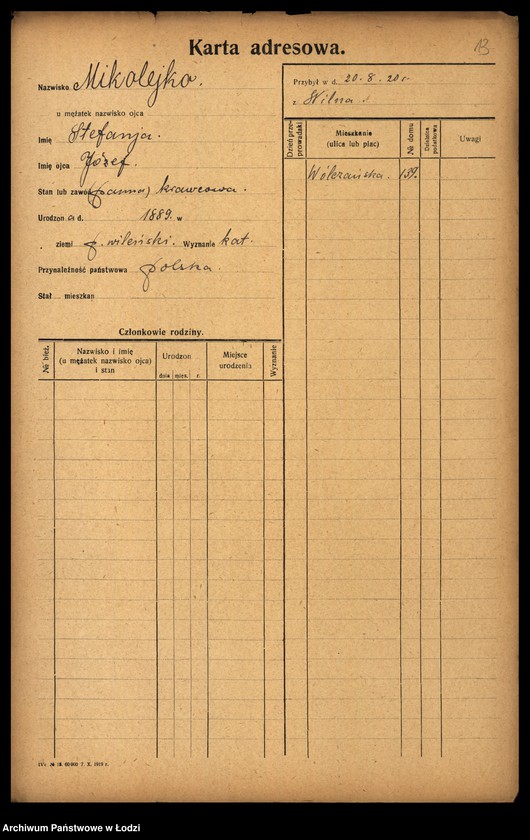 Karta adresowa.
13
Nazwisko Mikolejko.
u mężatek nazwisko ojca
Imię Stefanja.
Imię ojca Józef.
Stan lub zawód (panna) krawcowa.
Urodzon a d. 1889. w
ziemi p. wileński. Wyznanie kat.
Przynależność państwowa polska.
Stał mieszkan
Przybył w d. 20-8-20 r
z Wilna.
Dzień przeprowadzki
Mieszkanie
(ulica lub plac)
№ domu
Dzielnica podatkowa
Uwagi
Wólczańska. 139.
Członkowie rodziny.
№ bież.
Nazwisko i imię
(u mężatek nazwisko ojca)
i stan
Urodzon
dnia mies. r.
Miejsce
urodzenia
Wyznanie
IVc. № 18. 60.000. 7. X. 1919 r.
Archiwum Państwowe w Łodzi